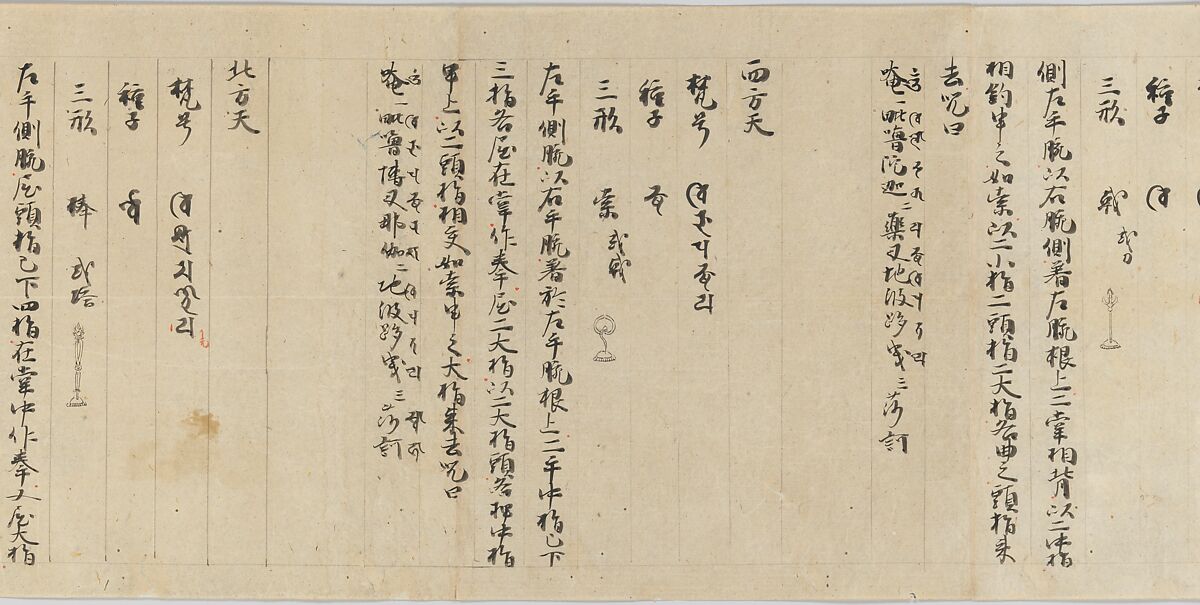 種子
三形 戟 或刀
側左手腕以右腕側著左腕根上二掌相背以二中指
相鉤申之如索以二小指二頭指二大指各曲之頭指来
去咒曰
唵一毗嚕陀迦二藥叉地波跢曳三莎訶
西方天
梵号
種子
三形 索 或戟
左手側腕以右手腕著於左手腕根上二手中指已下
三指各屈在掌作拳屈二大指以二大指頭各押中指
甲上以二頭指相交如索申之大指来去咒曰
唵一毗嚕博叉那伽二地波跢曳三莎訶
北方天
梵号
種子
三形 棒 或塔
左手側腕屈頭指已下四指在掌中作拳又屈大指